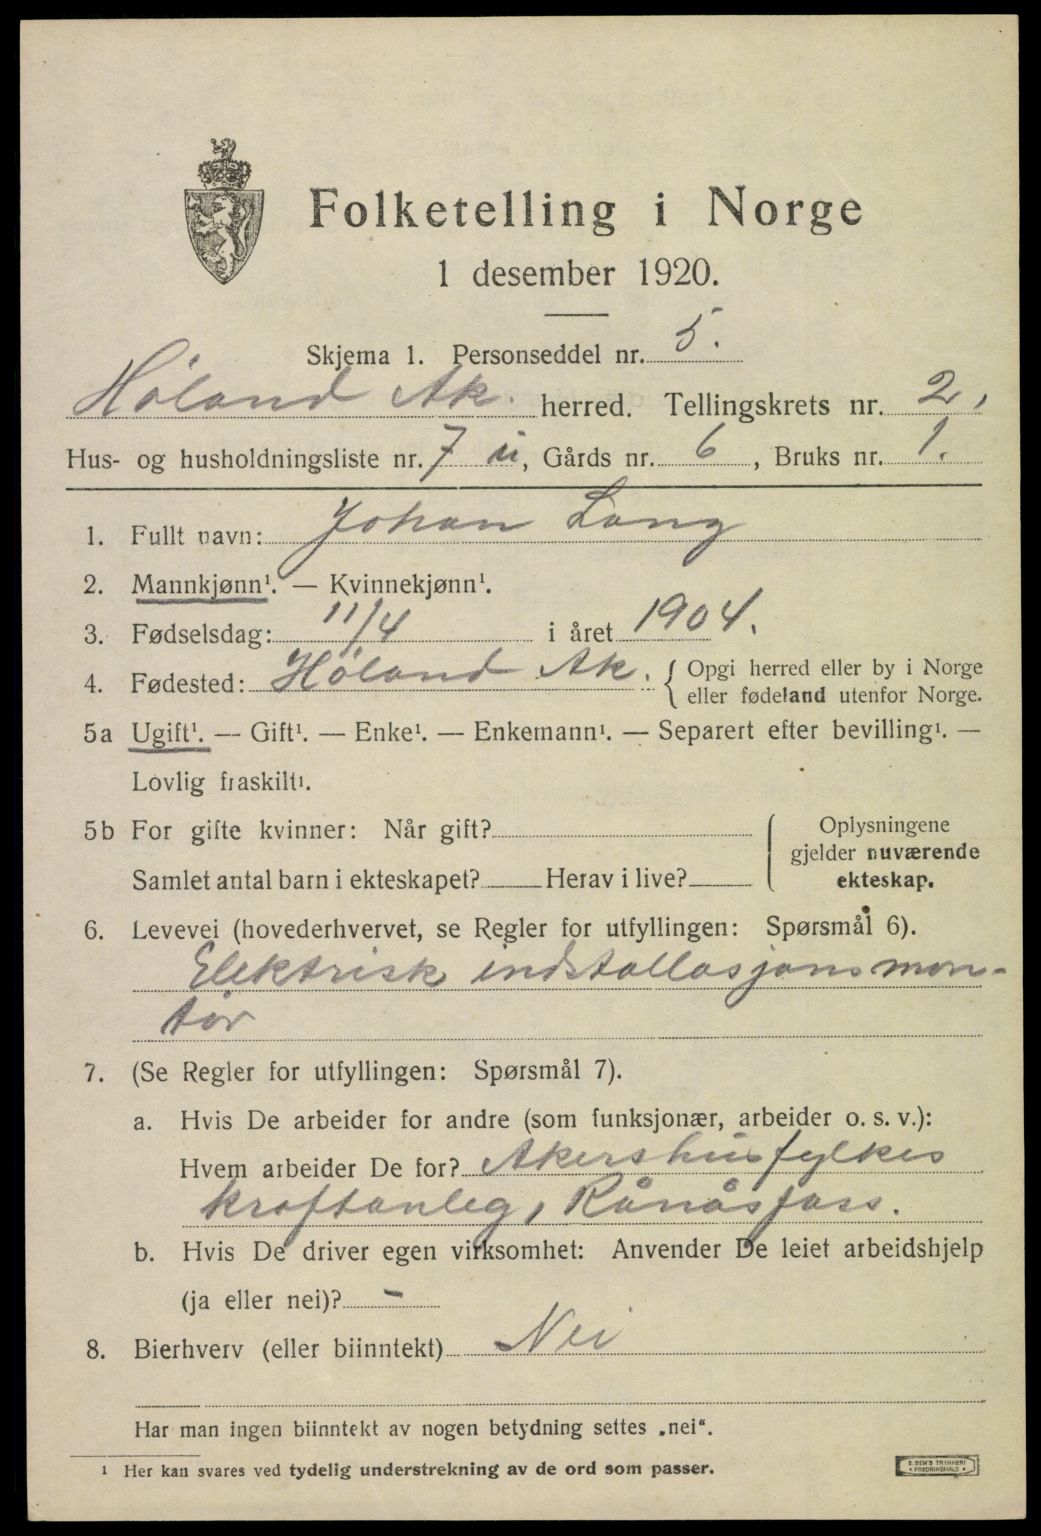 Folketelling i Norge
1 desember 1920.
Skjema 1. Personseddel nr. 5.
Høland Ak. herred. Tellingskrets nr. 2,
Hus- og husholdningsliste nr. 7 ü, Gårds nr. 6, Bruks nr. 1.
1. Fullt navn: Johan Lang
2. Mannkjønn¹. — Kvinnekjønn¹.
3. Fødselsdag: 11/4 i året 1904.
4. Fødested: Høland Ak. { Opgi herred eller by i Norge
eller fødeland utenfor Norge.
5a Ugift¹. — Gift¹. — Enke¹. — Enkemann¹. — Separert efter bevilling¹. —
Lovlig fraskilt¹.
5b For gifte kvinner: Når gift?
Samlet antal barn i ekteskapet? Herav i live?
Oplysningene
gjelder nuværende
ekteskap.
6. Levevei (hovederhvervet, se Regler for utfyllingen: Spørsmål 6).
Elektrisk indstallasjonsmon-
tør
7. (Se Regler for utfyllingen: Spørsmål 7).
a. Hvis De arbeider for andre (som funksjonær, arbeider o. s. v.):
Hvem arbeider De for? Akershus fylkes
kraftanleg, Rånåsfoss.
b. Hvis De driver egen virksomhet: Anvender De leiet arbeidshjelp
(ja eller nei)? -
8. Bierhverv (eller biinntekt) Nei
Har man ingen biinntekt av nogen betydning settes „nei“.
¹ Her kan svares ved tydelig understrekning av de ord som passer.
E. SEM'S TRYKKERI
• FREDRIKSHALD •